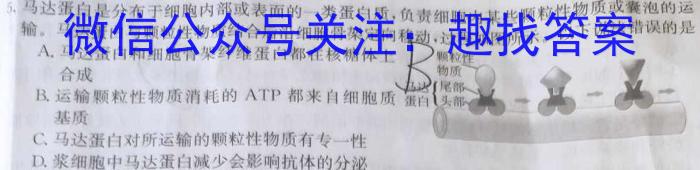 5. 马达蛋白是分布于细胞内部或表面的一类蛋白质,负责细胞内某些颗粒性物质或囊泡的运
输。马达蛋白
微信公众号关注:趣找答案
错误的是
A. 马达蛋白和细胞骨架纤维蛋白都在核糖体上
合成
B. 运输颗粒性物质消耗的 ATP 都来自细胞质
基质
C. 马达蛋白对所运输的颗粒性物质有专一性
D. 浆细胞中马达蛋白减少会影响抗体的分泌
B
颗粒性
物质
马达
蛋白
尾部
头部